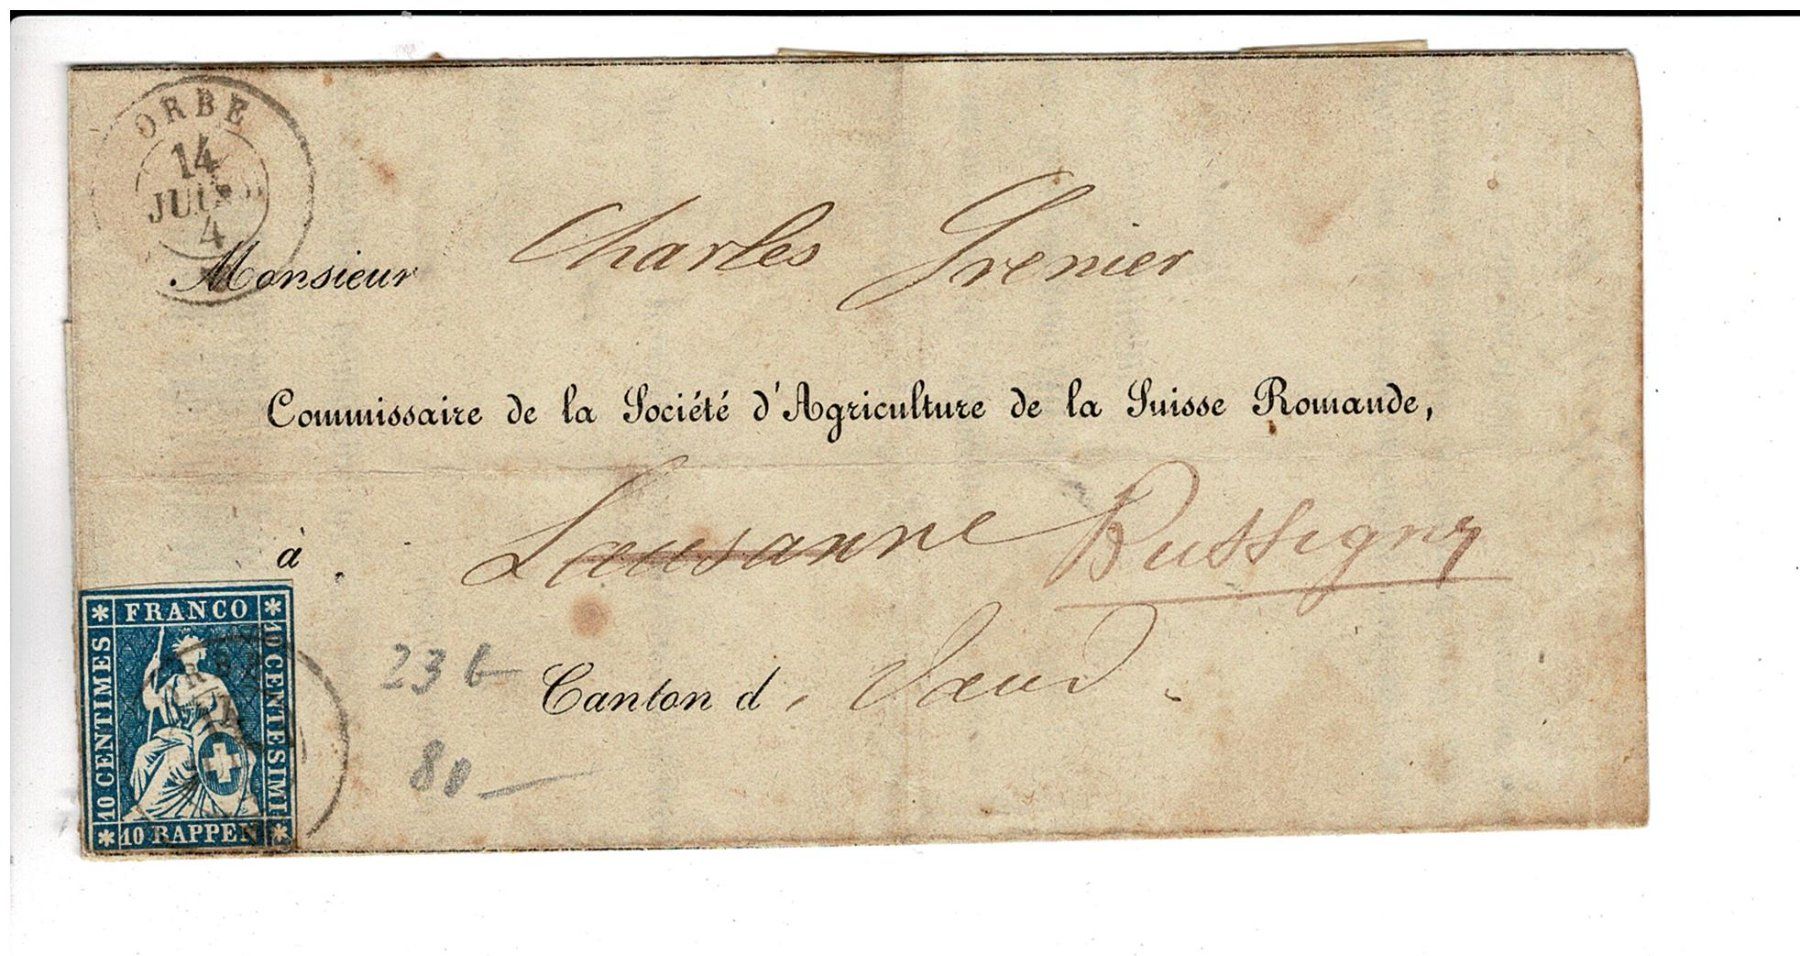 ORBE
14
JUIN
4
Monsieur Charles Grenier
Commissaire de la Société d'Agriculture de la Suisse Romande,
à Lausanne Bussigny
Canton d, Vaud.
23 b
80
FRANCO
10 CENTIMES
10 CENTESIMI
10 RAPPEN